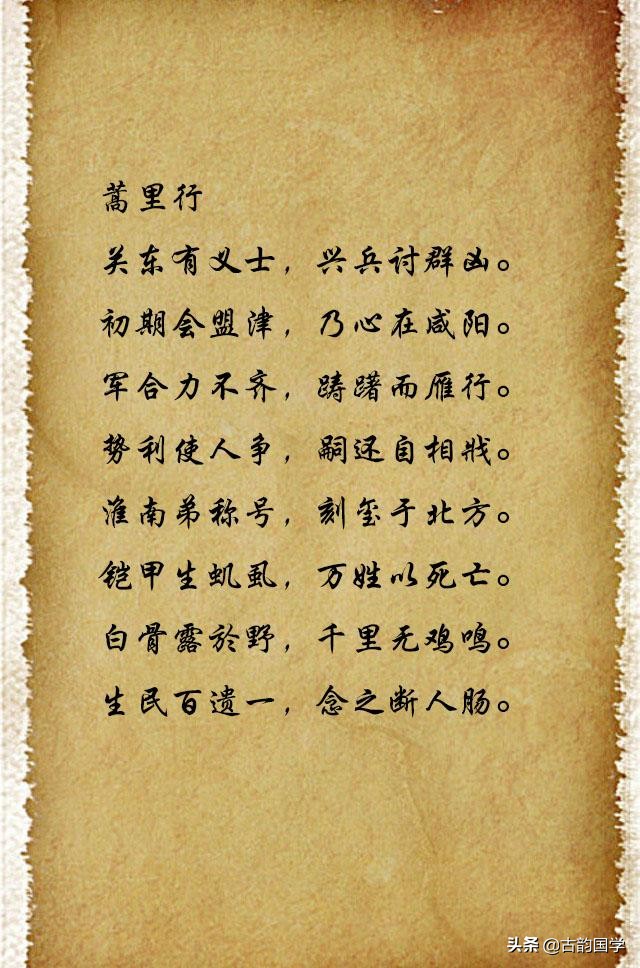 蒿里行
关东有义士，兴兵讨群凶。
初期会盟津，乃心在咸阳。
军合力不齐，踌躇而雁行。
势利使人争，嗣还自相戕。
淮南弟称号，刻玺于北方。
铠甲生虮虱，万姓以死亡。
白骨露於野，千里无鸡鸣。
生民百遗一，念之断人肠。
头条 @古韵国学